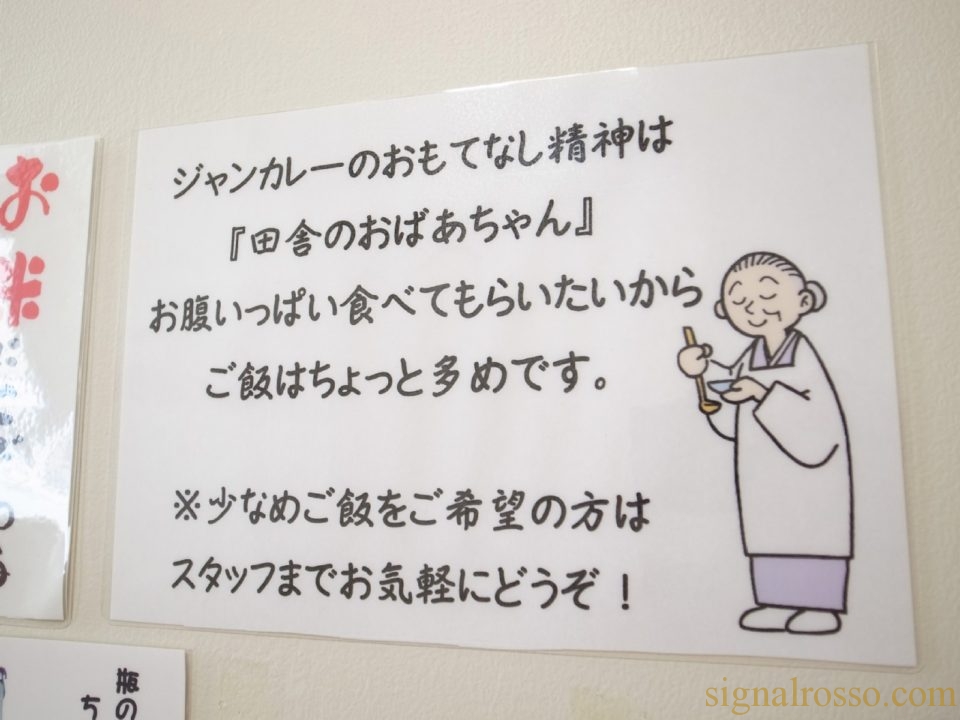 ジャンカレーのおもてなし精神は
『田舎のおばあちゃん』
お腹いっぱい食べてもらいたいから
ご飯はちょっと多めです。
※少なめご飯をご希望の方は
スタッフまでお気軽にどうぞ！
お米
瓶の
ち
signalrosso.com